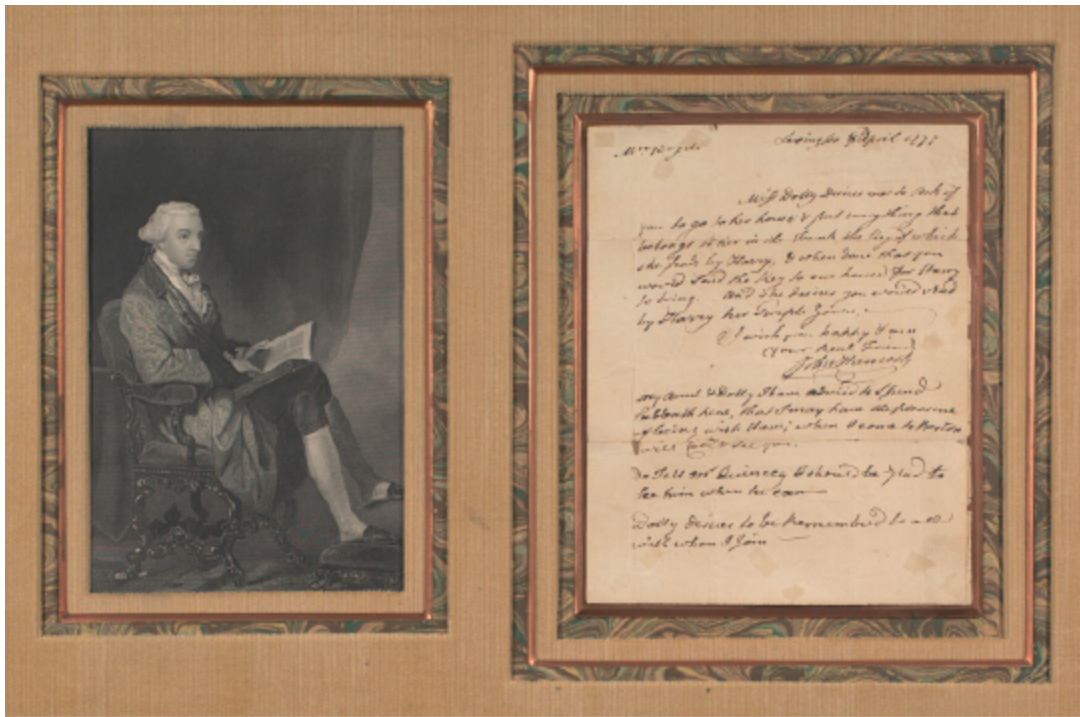 Lexington 8 April 1775
Miss Dolly desires me to ask of
you to go to her house & put everything that
belongs to her in the Trunk the Key of which
she sends by Harry, & when done that you
would send the Key to our house for Harry
to bring. And she desires you would send
by Harry her
I wish you happy & am
Your Friend
John Hancock
My Aunt & Dolly I have advised to spend
Sabbath here, that I may have the pleasure
of being with them; when I come to Boston
will to see you.
Do tell Mr Quincey I should be glad to
see him when he can
Dolly desires to be Remember'd to
with whom I Join